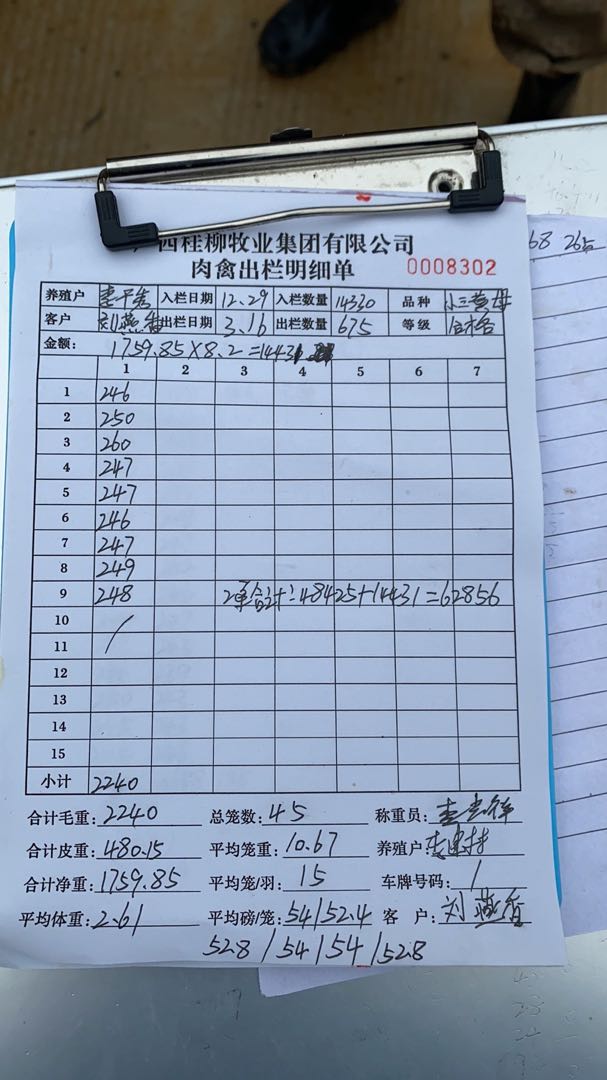 西桂柳牧业集团有限公司
肉禽出栏明细单 0008302
养殖户 入栏日期 12.29 入栏数量 14330 品种
客户 刘燕香 出栏日期 3.16 出栏数量 675 等级 合格
金额: 1759.85×8.2=14431
1 2 3 4 5 6 7
1 246
2 250
3 260
4 247
5 247
6 246
7 247
8 249
9 248 2单合计:48425+14431=62856
10
11
12
13
14
15
小计 2240
合计毛重: 2240 总笼数: 45 称重员:
合计皮重: 480.15 平均笼重: 10.67 养殖户:
合计净重: 1759.85 平均笼/羽: 15 车牌号码: 1
平均体重: 2.61 平均磅/笼: 54/52.4 客户: 刘燕香
52.8/54/54/52.8
68 26